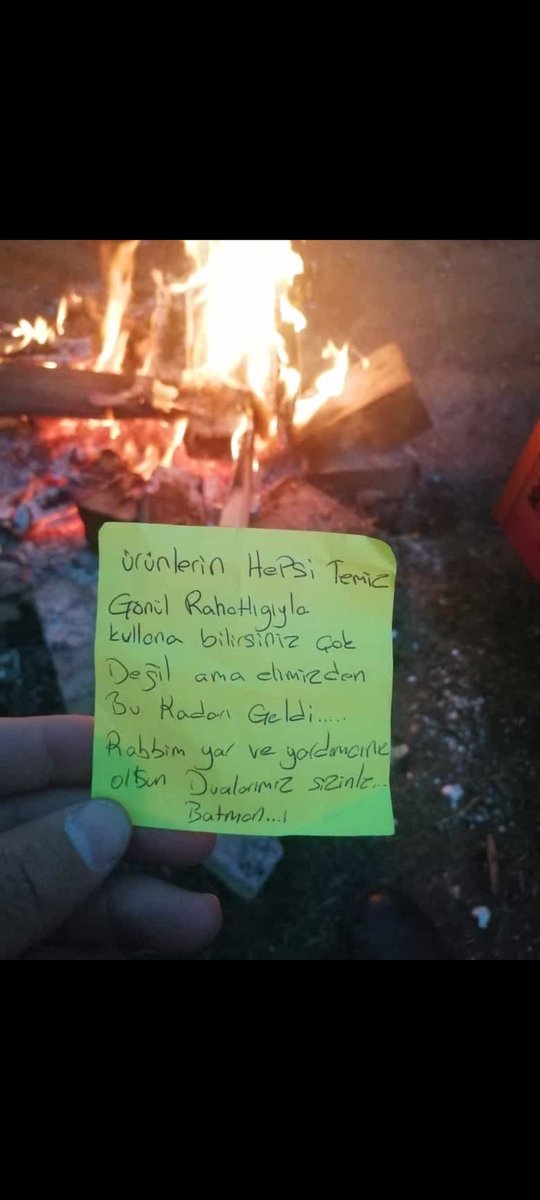 ürünlerin HePSi Temiz
Gönül Rahatlıgıyla
kullana bilirsiniz çok
Değil ama elimizden
Bu Kadar Geldi.....
Rabbim yar ve yardımcınız
olsun Dualarımız sizinle...
Batman...!